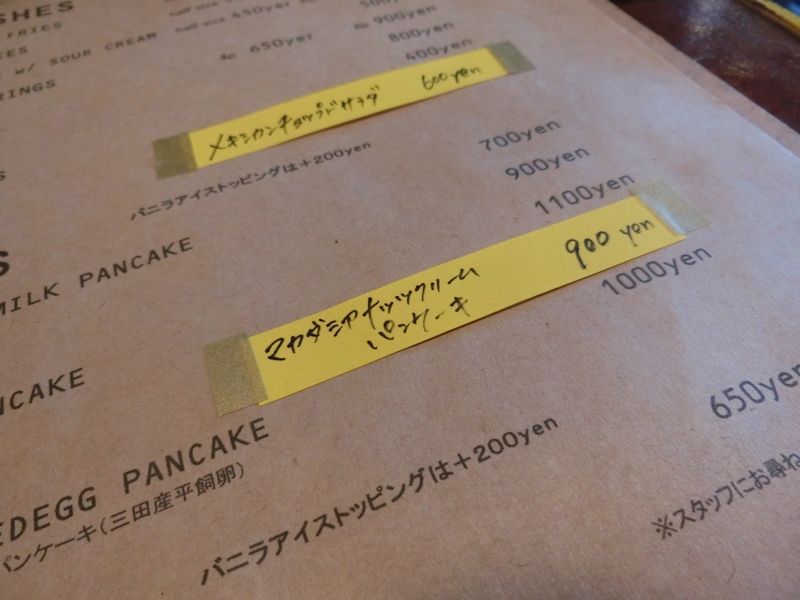 SHES
FRIES
half size
500yen
IES
half size 450yen
6p 900yen
w/ SOUR CREAM
4p 650yen
800yen
RINGS
400yen
メキシカンチョップドサラダ 600yen
バニラアイストッピングは+200yen
700yen
S
900yen
1100yen
MILK PANCAKE
マカダミアナッツクリーム
パンケーキ
900 yen
1000yen
NCAKE
EDEGG PANCAKE
650yen
パンケーキ(三田産平飼卵)
バニラアイストッピングは+200yen
※スタッフにお尋ね